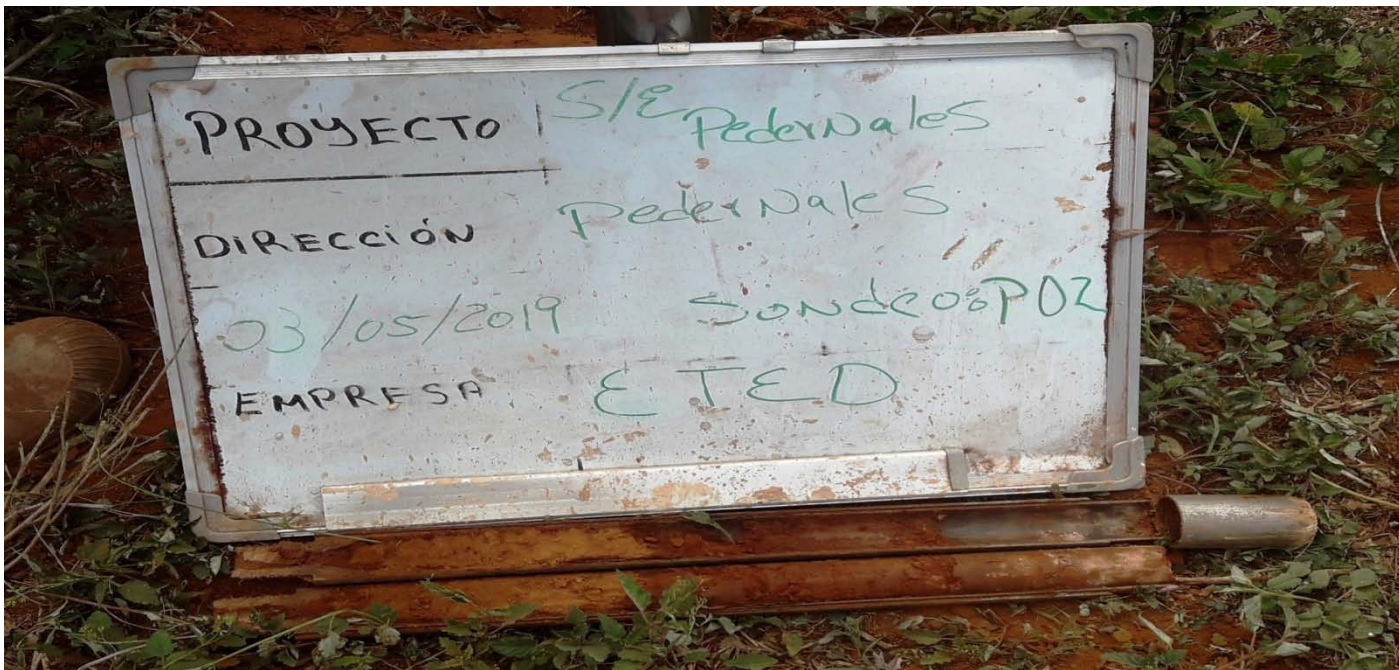 PROYECTO S/E Pedernales
DIRECCIÓN Pedernales
03/05/2019 Sondeo: P02
EMPRESA ETED